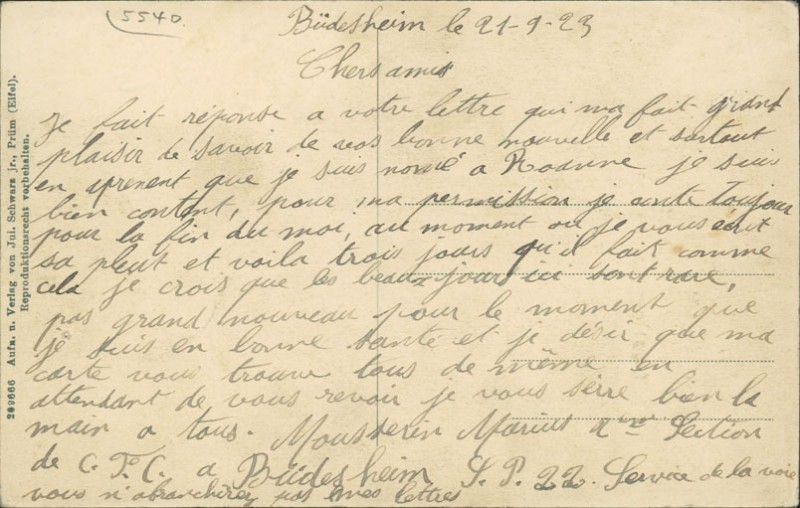 5540
Büdesheim le 21-9-23
Chers amis
Je fait réponse a votre lettre qui ma fait grand
plaisir de savoir de vos bonne nouvelle et surtout
en aprenent que je suis nomé a Roanne je suis
bien content, pour ma permission je conte toujour
pour la fin du moi, au moment ou je vous écrit
sa pleut et voila trois jours qu'il fait comme
cela je crois que les beaux jour ici sont rare,
pas grand nouveau pour le moment que
je suis en bonne santé et je désir que ma
carte vous trouve tous de même en
attendant de vous revoir je vous serre bien la
main a tous. Mousserin Marius Section
de C. F. C. a Büdesheim S. P. 22. Service de la voie
vous n'abranchirez pas mes lettres
289666 Aufn. u. Verlag von Jul. Schwarz jr., Prüm (Eifel).
Reproduktionsrecht vorbehalten.